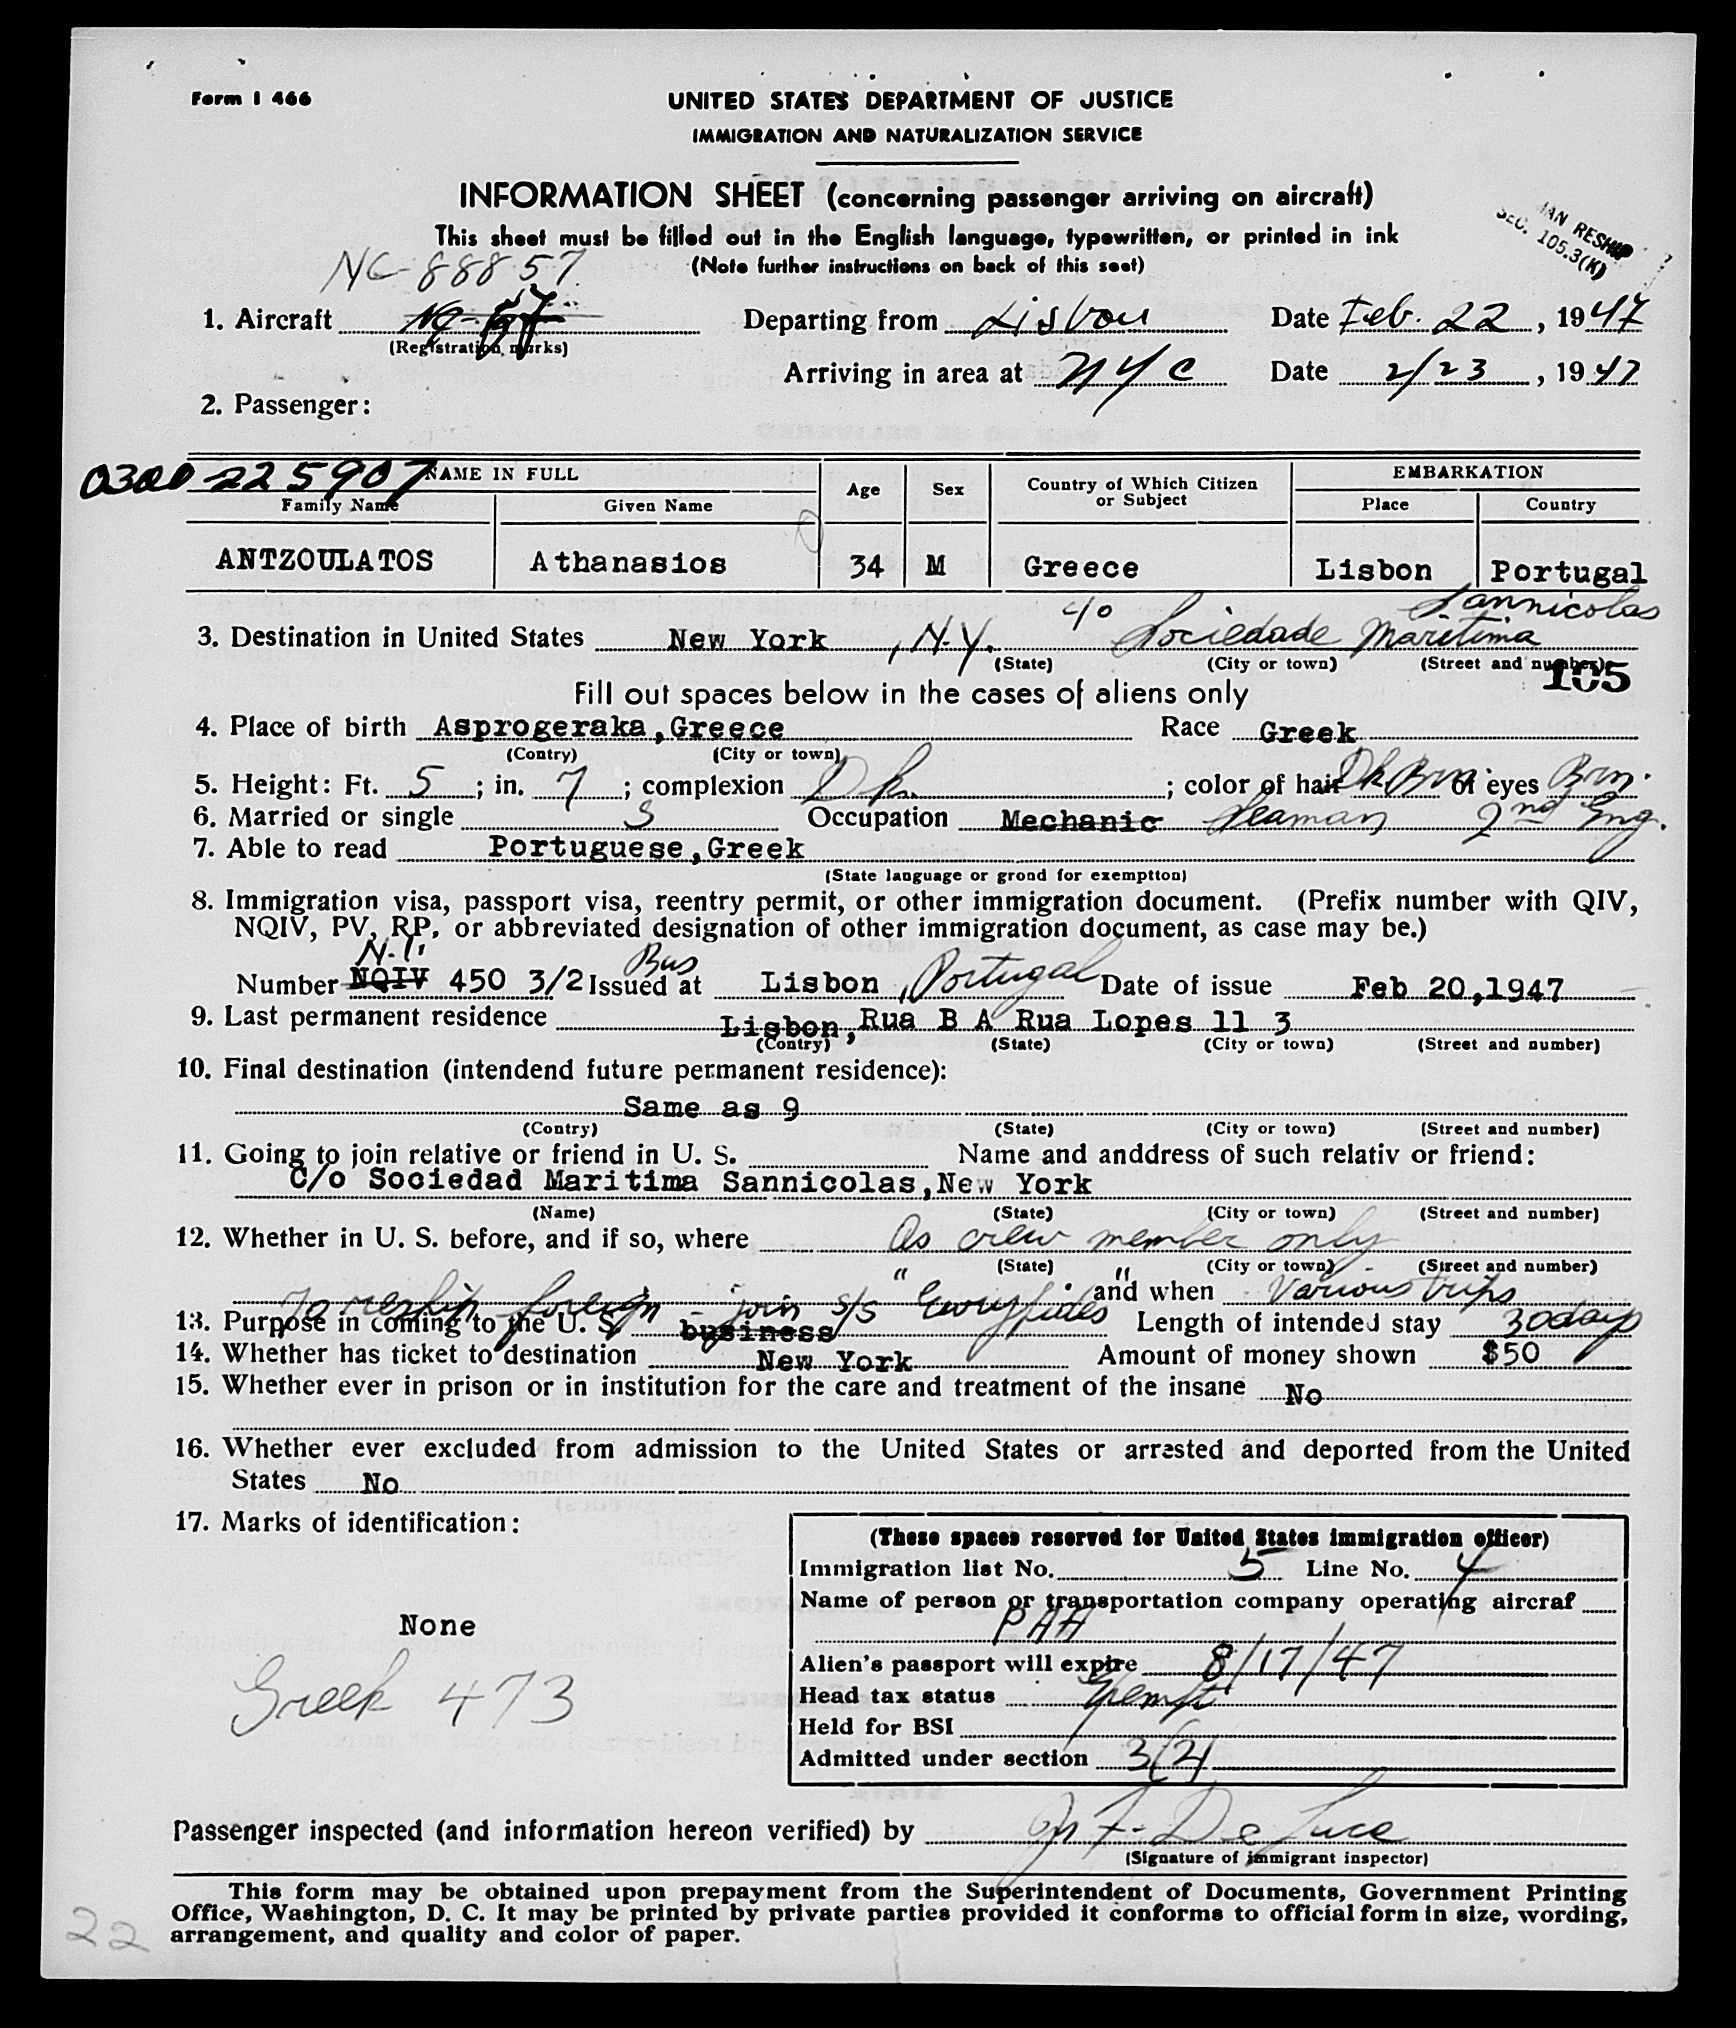 Form I 466
UNITED STATES DEPARTMENT OF JUSTICE
IMMIGRATION AND NATURALIZATION SERVICE
INFORMATION SHEET (concerning passenger arriving on aircraft)
This sheet must be filled out in the English language, typewritten, or printed in ink
(Note further instructions on back of this seet)
RESHIP
SEC. 105.3(K)
NC-88857
1. Aircraft Departing from Lisbon Date Feb. 22, 1947
(Registration marks)
Arriving in area at NYC Date 2/23, 1947
2. Passenger:
0300-225907
NAME IN FULL Age Sex Country of Which Citizen or Subject EMBARKATION
Family Name Given Name Place Country
ANTZOULATOS Athanasios 34 M Greece Lisbon Portugal
3. Destination in United States New York, N.Y. c/o Sociedade Maritima Sannicolas
(State) (City or town) (Street and number)
105
Fill out spaces below in the cases of aliens only
4. Place of birth Asprogeraka,Greece Race Greek
(Contry) (City or town)
5. Height: Ft. 5; in. 7; complexion Dk.; color of hair Dk Brn. of eyes Brn.
6. Married or single S Occupation Mechanic Seaman 2nd Eng.
7. Able to read Portuguese,Greek
(State language or grond for exemptton)
8. Immigration visa, passport visa, reentry permit, or other immigration document. (Prefix number with QIV,
NQIV, PV, RP, or abbreviated designation of other immigration document, as case may be.)
Number NQIV 450 3/2 Bus Issued at Lisbon, Portugal Date of issue Feb 20,1947
9. Last permanent residence Lisbon,Rua B A Rua Lopes 11 3
(Contry) (State) (City or town) (Street and number)
10. Final destination (intendend future permanent residence):
Same as 9
(Contry) (State) (City or town) (Street and number)
11. Going to join relative or friend in U. S. Name and anddress of such relativ or friend:
C/o Sociedad Maritima Sannicolas,New York
(Name) (State) (City or town) (Street and number)
12. Whether in U. S. before, and if so, where As crew member only
(State) (City or town) (Street and number)
and when Various trips
To reship foreign - join s/s "Evryfides"
13. Purpose in coming to the U. S. business Length of intended stay 30 days
14. Whether has ticket to destination New York Amount of money shown $50
15. Whether ever in prison or in institution for the care and treatment of the insane No
16. Whether ever excluded from admission to the United States or arrested and deported from the United
States No
17. Marks of identification:
None
Greek 473
(These spaces reserved for United States immigration officer)
Immigration list No. 5 Line No. 4
Name of person or transportation company operating aircraf
PAA
Alien's passport will expire 8/17/47
Head tax status Exempt
Held for BSI
Admitted under section 3(2)
Passenger inspected (and information hereon verified) by De Luce
(Signature of immigrant inspector)
This form may be obtained upon prepayment from the Superintendent of Documents, Government Printing
Office, Washington, D. C. It may be printed by private parties provided it conforms to official form in size, wording,
arrangement, and quality and color of paper.
22